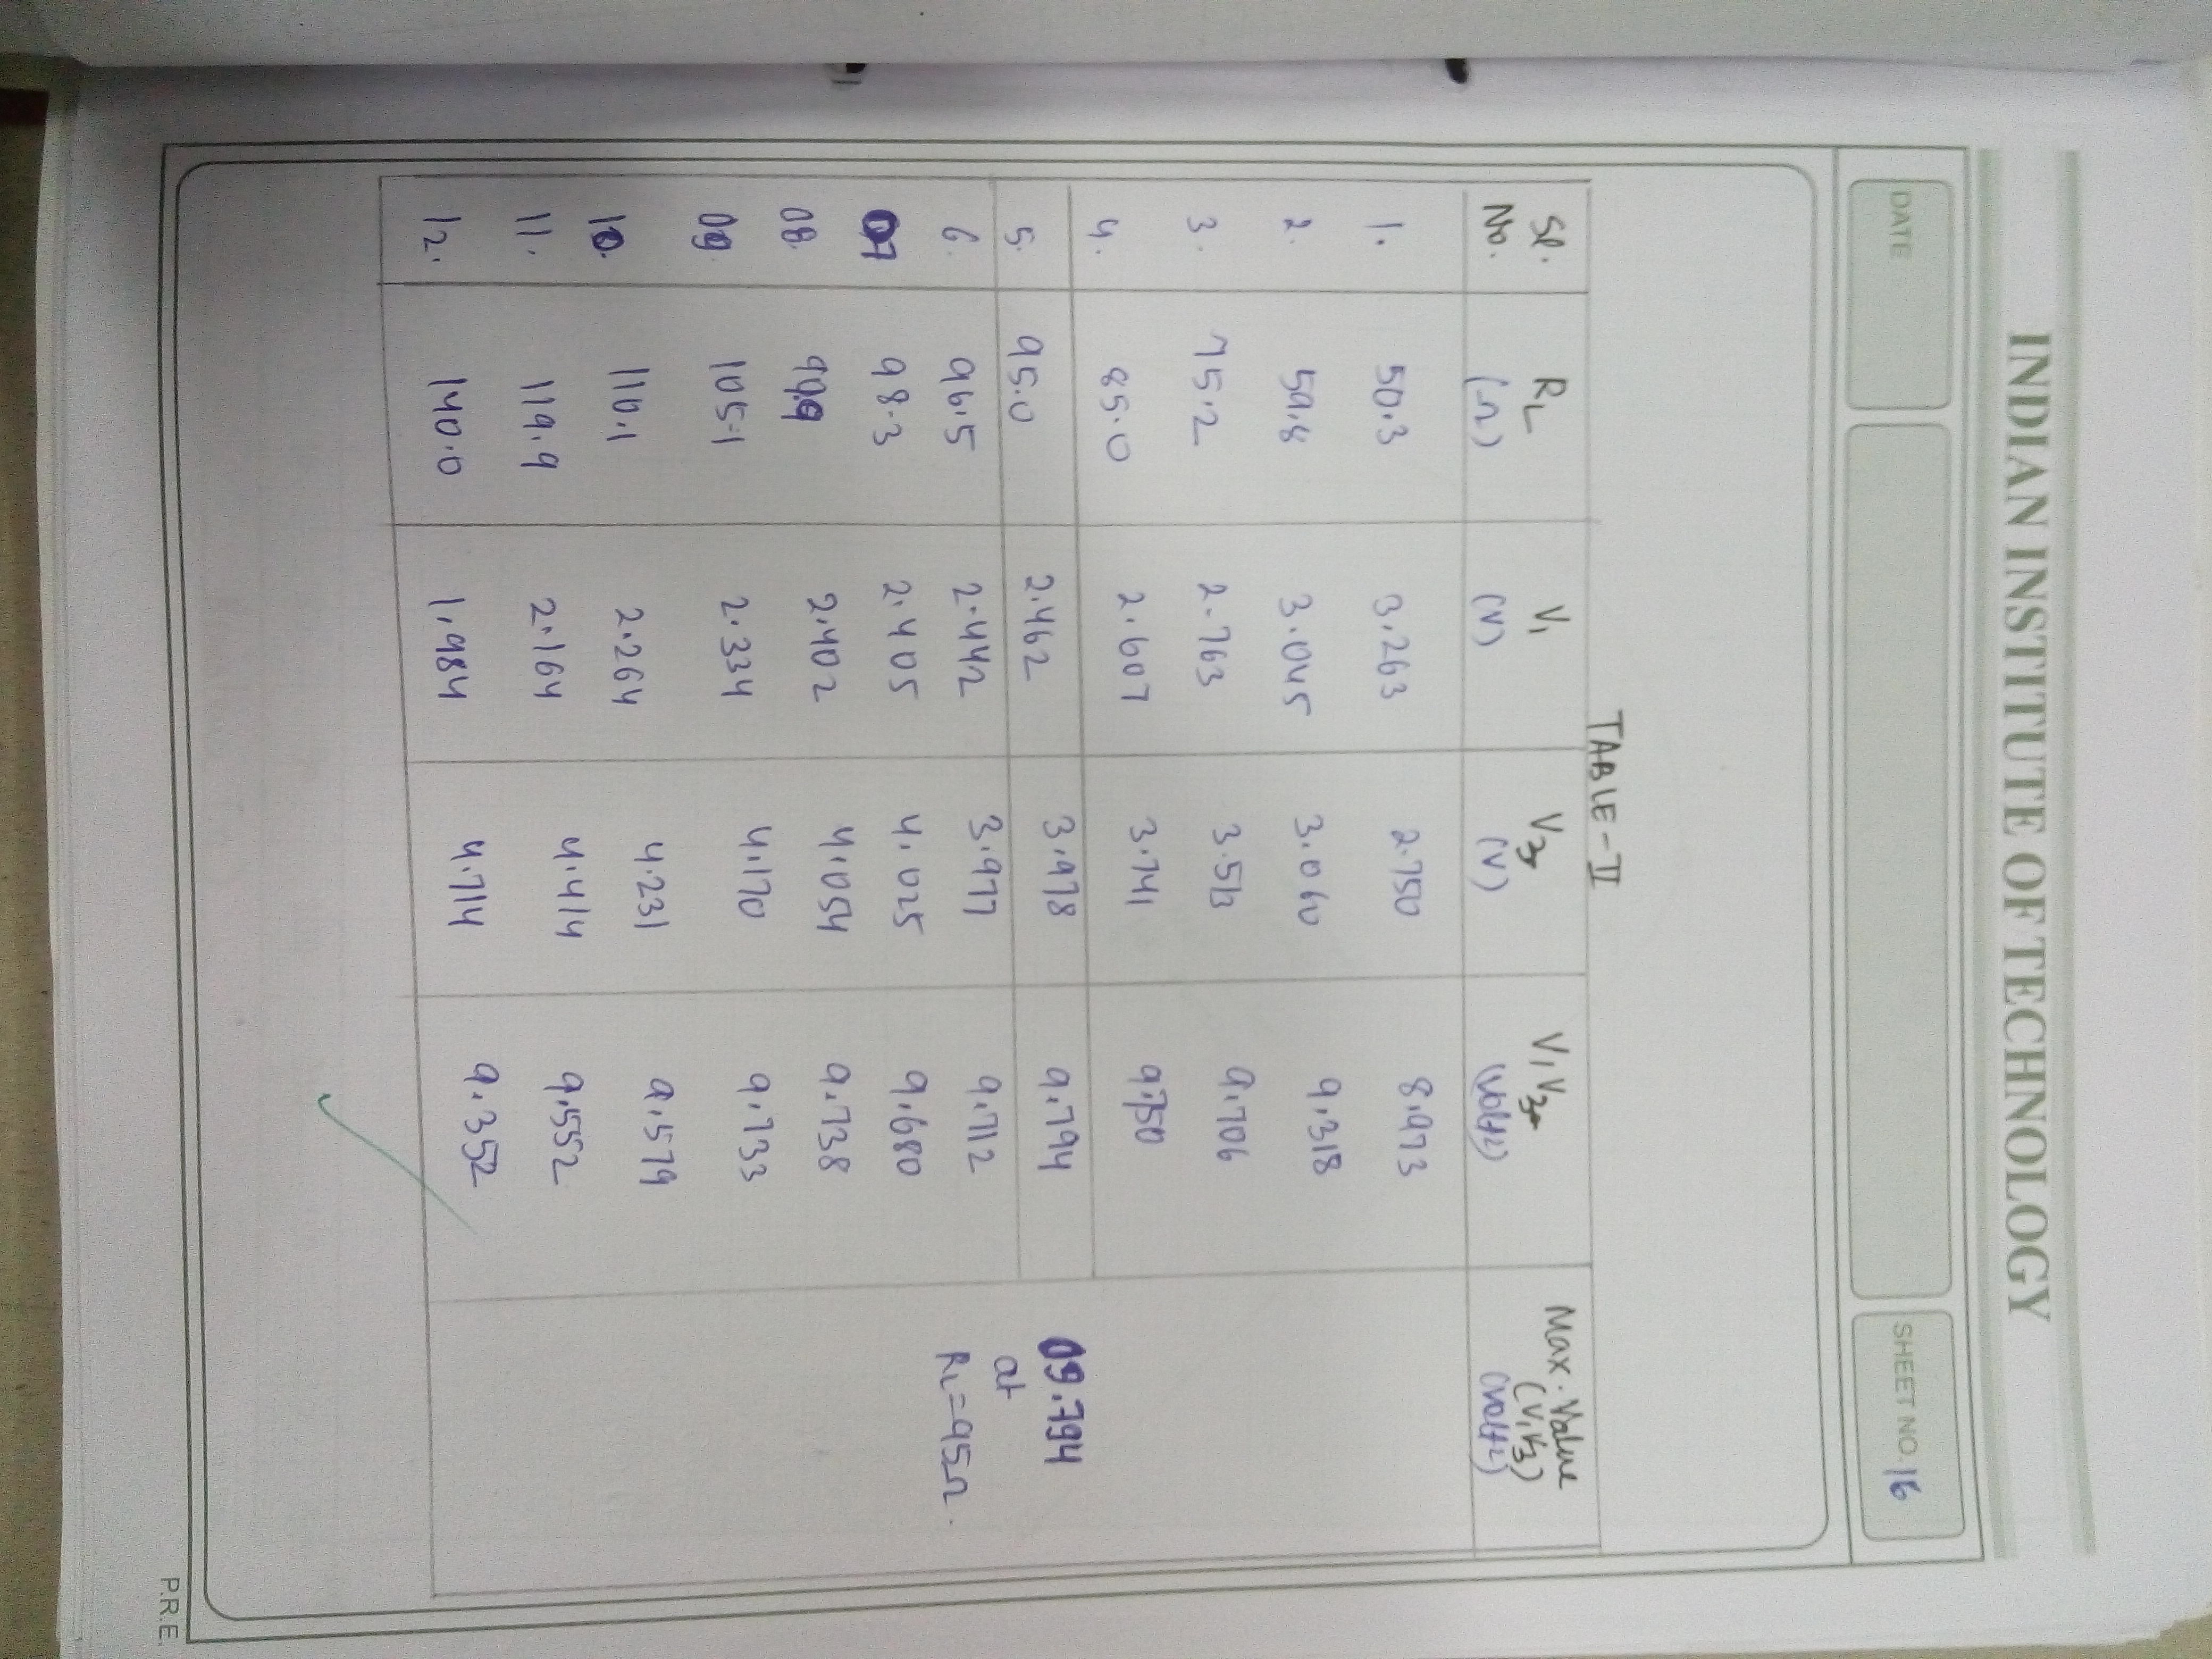 INDIAN INSTITUTE OF TECHNOLOGY
DATE
SHEET NO. 16
TABLE-II
Sl. No. RL (Ω) V1 (V) V3 (V) V1V3 (Volt2) Max. Value (V1V3) (Volt2)
1. 50.3 3.263 2.750 8.973
2. 59.8 3.045 3.060 9.318
3. 75.2 2.763 3.513 9.706
4. 85.0 2.607 3.741 9.750
5. 95.0 2.462 3.978 9.794 09.794
at
RL=95Ω.
6. 96.5 2.442 3.977 9.712
07 98.3 2.405 4.025 9.680
08. 99.9 2.402 4.054 9.738
09. 105.1 2.334 4.170 9.733
10. 110.1 2.264 4.231 9.579
11. 119.9 2.164 4.414 9.552
12. 140.0 1.984 4.714 9.352
P.R.E.